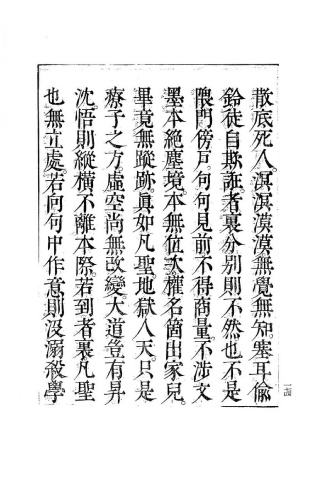 散底死人溟溟漠漠無覺無知塞耳偸
鈴徒自欺誑者裏分別則不然也不是
隈門傍戶句句見前不得商量不涉文
墨本絕塵境本無位次權名箇出家兒
畢竟無蹤跡眞如凡聖地獄人天只是
療子之方虛空尚無改變大道豈有昇
沈悟則縱橫不離本際若到者裏凡聖
也無立處若向句中作意則沒溺殺學
一四